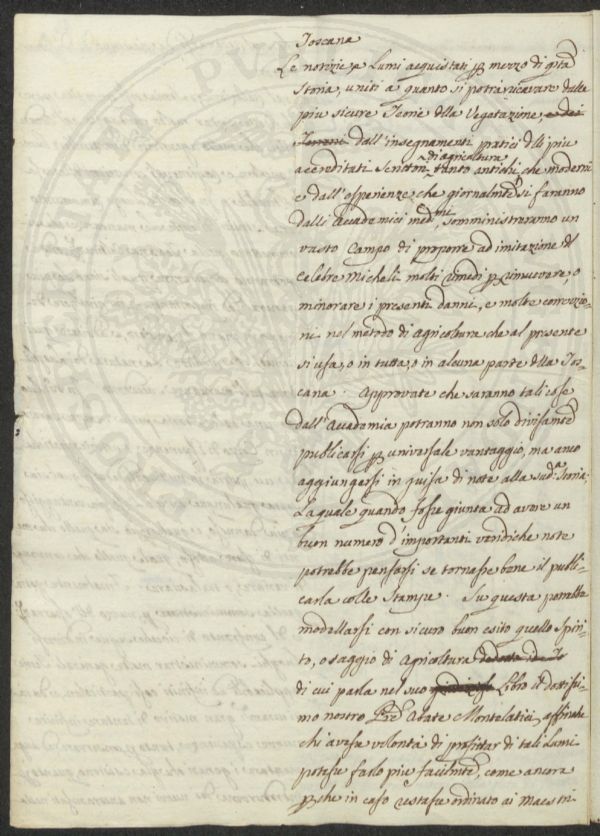 Toscana
Le notizie, e Lumi acquistati p mezzo di qta
Storia, uniti a quanto si potrà ricavare dalle
piu sicure Teorie della Vegetazione, e dei
Terreni dall'insegnamenti pratici dlli piu
di agricoltura
accreditati Scrittori tanto antichi, che moderni
e dall'esperienze, che giornalmte si faranno
dalli Accademici medmi, somministreranno un
vasto Campo di proporre ad imitazione dl
Celebre Micheli molti rimedj p rimuovere, o
minorare i presenti danni, e molte correzio-
ni nel metodo di Agricoltura che al presente
si usa, o in tutta, o in alcuna parte dlla Tos-
cana. Approvate che saranno tali cose
dall'Accademia potranno non solo divisamte
publicarsi p universale vantaggio, ma anco
aggiungersi in guisa di note alla sudta Storia,
La quale quando fosse giunta ad avere un
buon numero d'importanti veridiche note
potrebbe pensarsi se tornasse bene il publi-
carla colle Stampe. Su questa potrebbe
modellarsi con sicuro buon esito quello Spiri-
to, o saggio di Agricoltura
di cui parla nel suo Libro il dottissi-
mo nostro Pre Abate Montelatici, affinchè
chi avesse volontà di profittar di tali Lumi
potesse farlo piu facilmte, come ancora
p che in caso restasse ordinato ai Maestri